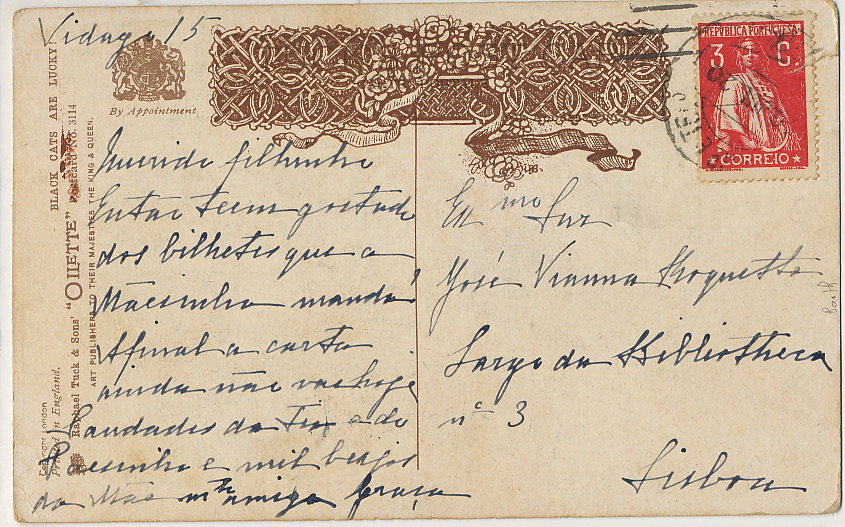 Vidago 15
By Appointment
BLACK CATS ARE LUCKY!
"OILETTE" Postcard No. 3114
Raphael Tuck & Sons'
ART PUBLISHERS TO THEIR MAJESTIES THE KING & QUEEN.
Copyright London
Printed in England.
Querido filhinho
Entao teem gostado
dos bilhetes que a
Mãesinha manda?
Afinal a carta
ainda não vae hoje
Saudades da Tia e do
e mil beijos
da Mãe mto amiga Graça
REPUBLICA PORTUGUESA
3 C.
CORREIO
Exmo Snr
José Vianna Roquette
Largo da Bibliotheca
nº 3
Lisboa